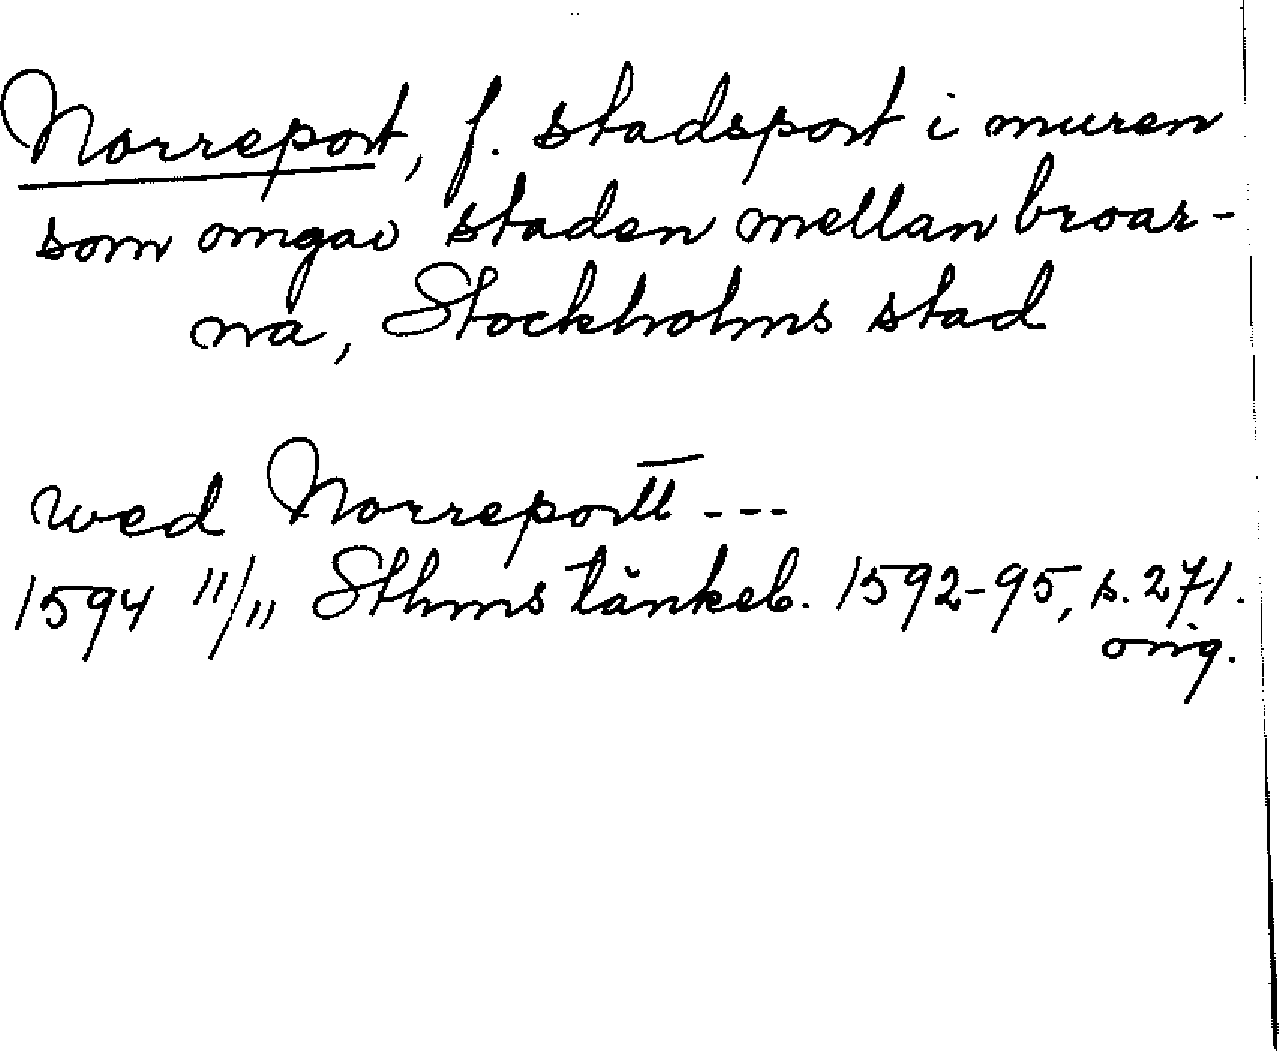 Norreport, f. stadsport i muren
som omgav staden mellan broar-
na, Stockholms stad
wed Norreportt ---
1594 11/11 Sthms tänkeb. 1592-95, s. 271.
orig.